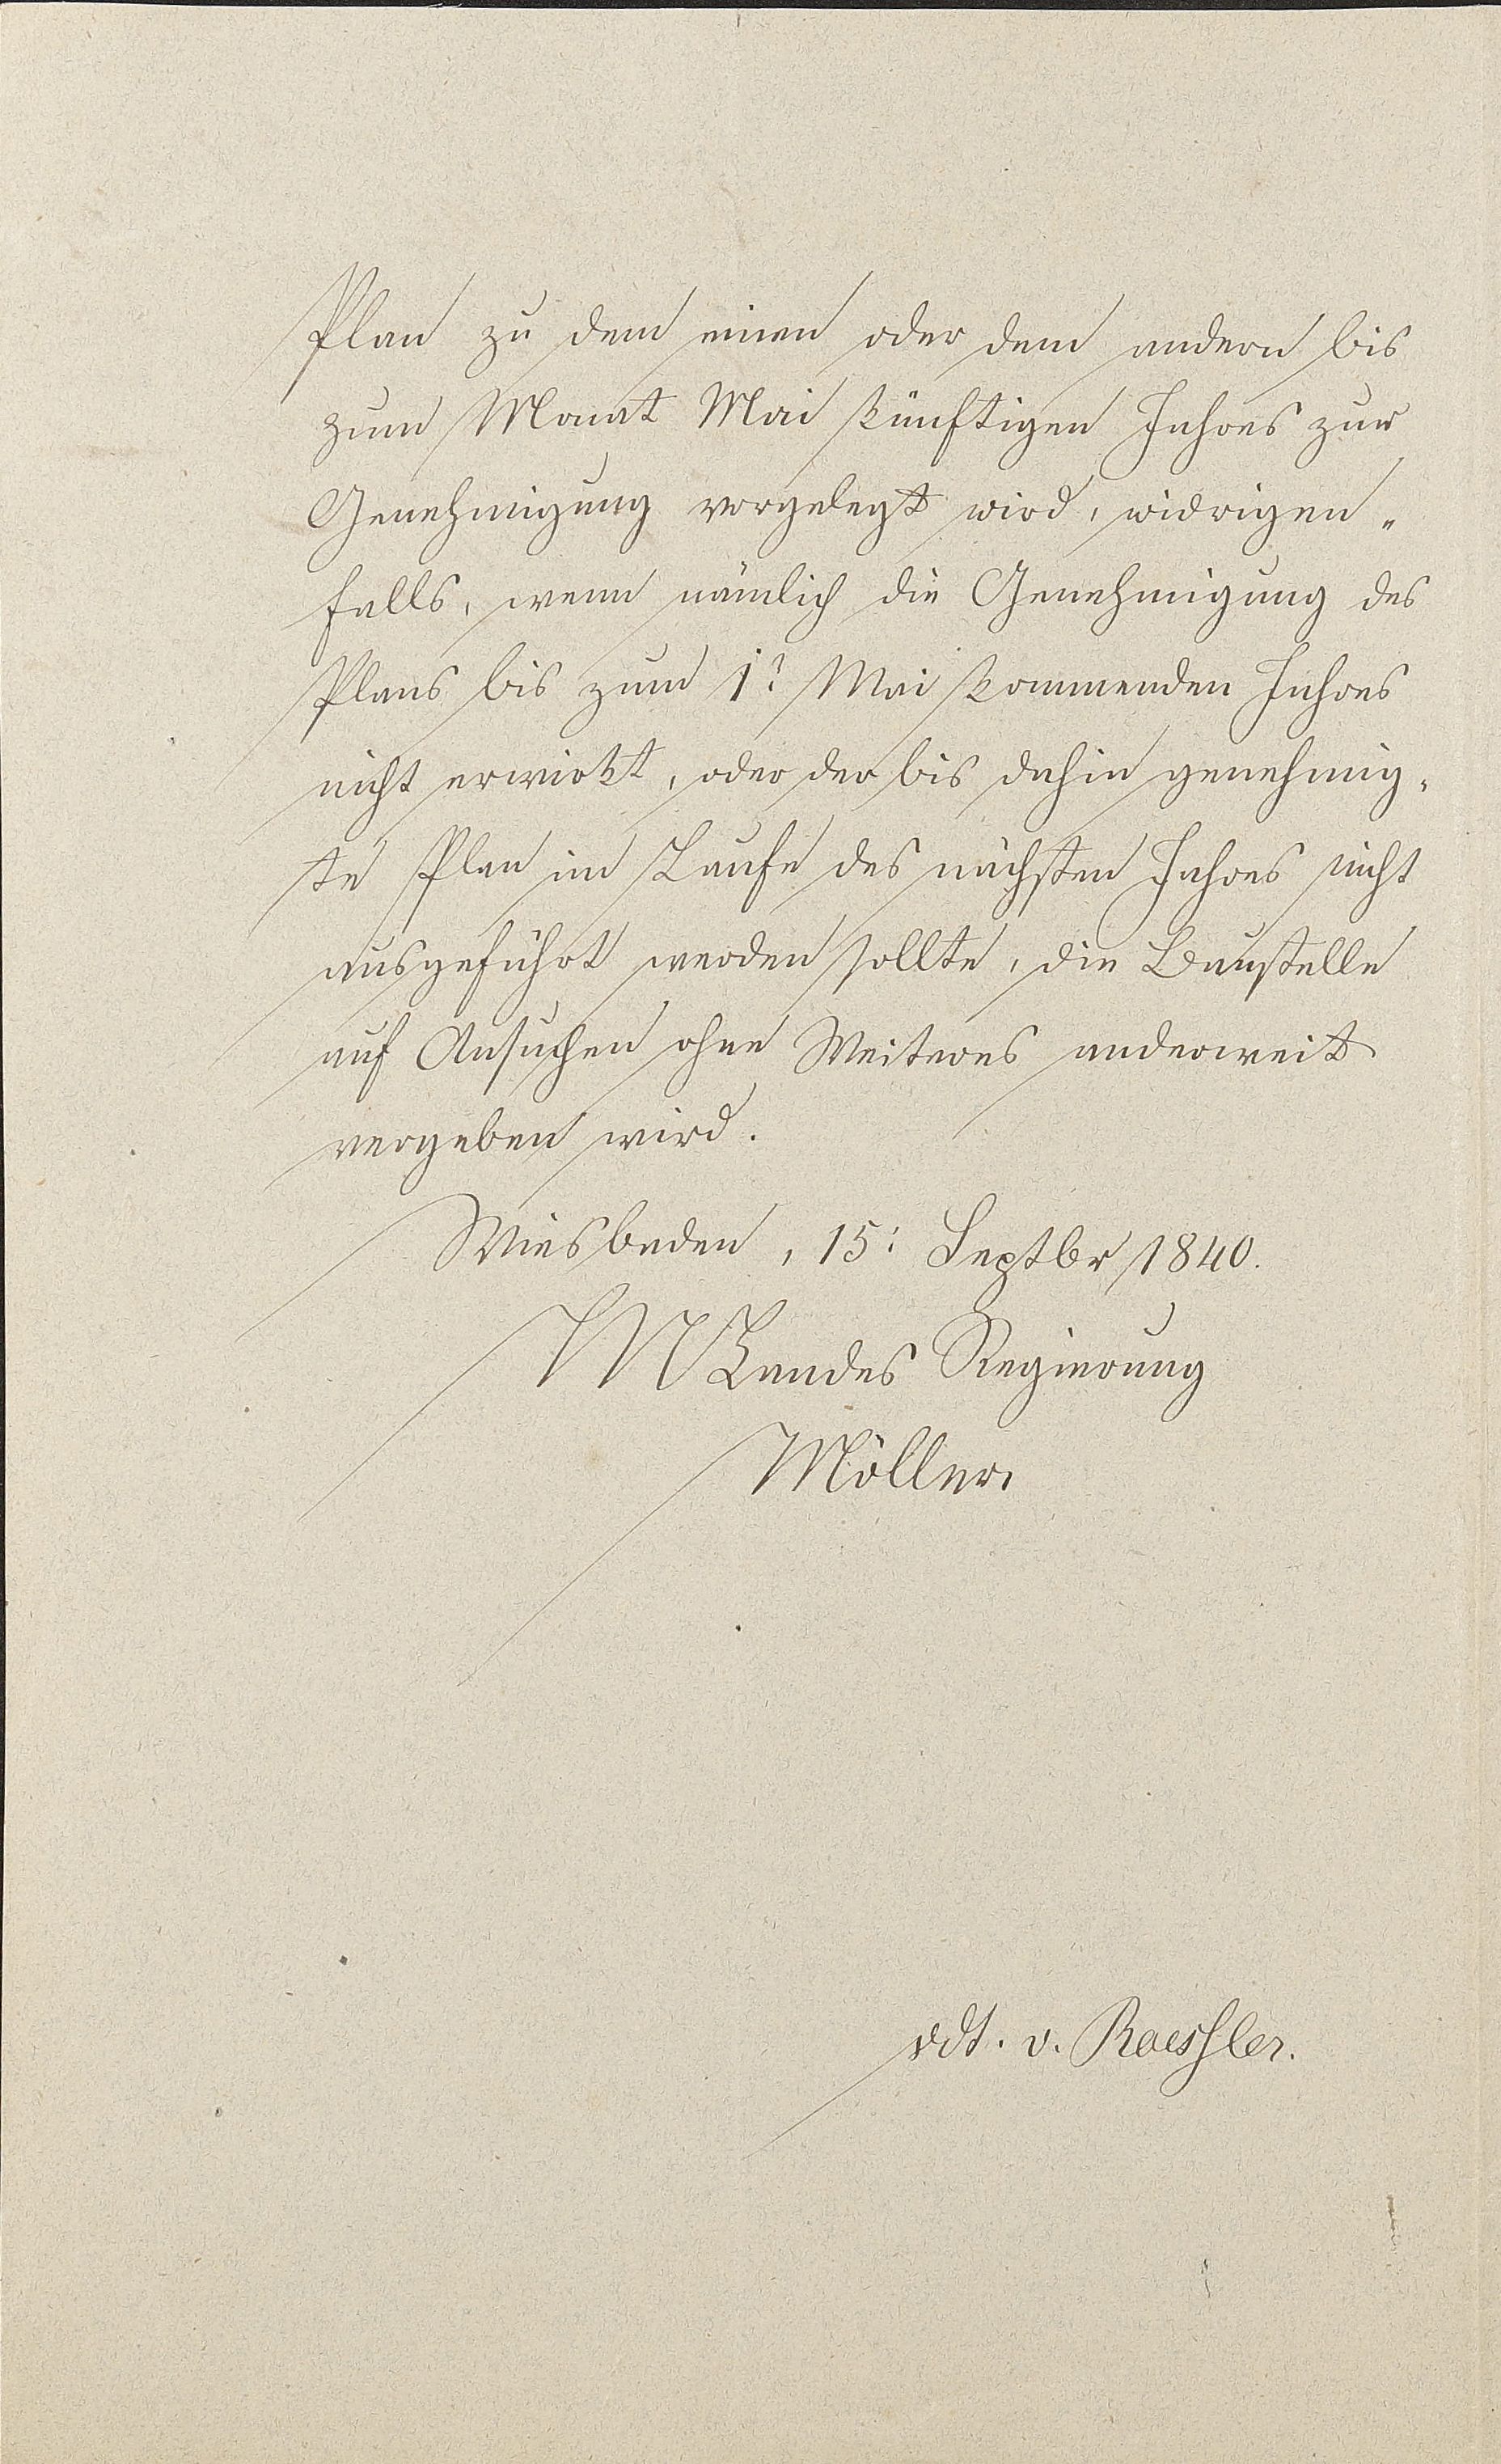 Plan zu dem einen oder dem andern bis
zum Monat Mai künftigen Jahres zur
Genehmigung vorgelegt wird, widrigen„
falls, wenn nämlich die Genehmigung des
Plans bis zum 1t Mai kommenden Jahres
nicht erwirkt, oder der bis dahin genehmig„
te Plan im Laufe des nächsten Jahres nicht
ausgeführt werden sollte, die Baustelle
auf Ansuchen ohne Weiteres anderweit
vergeben wird.
Wiesbaden, 15: Septbr 1840.
HN Landes Regierung
Möller.
vdt. v. Roessler.